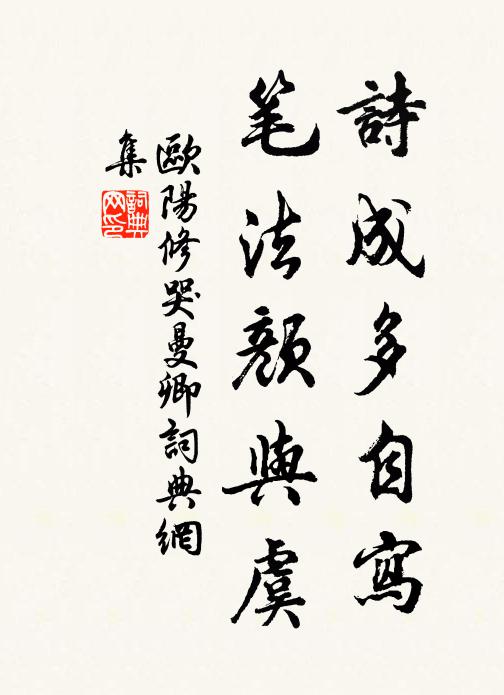 詩成多自寫
笔法顏與虞
歐陽修哭曼卿詞典網
集
詞典
网印